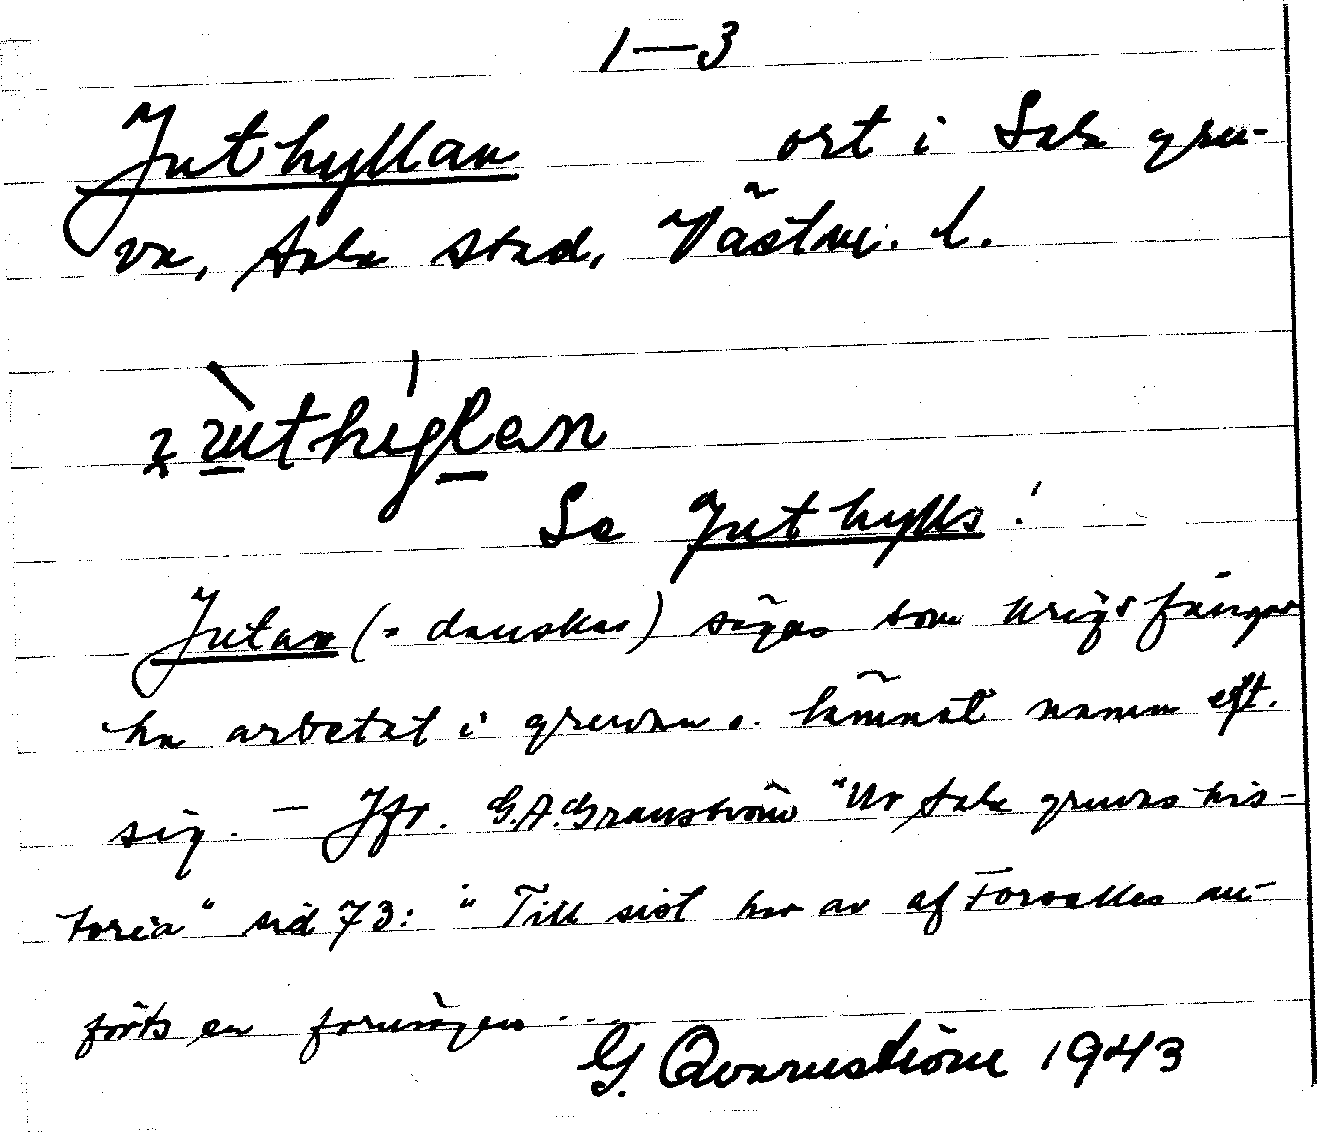 1—3
Juthyllan ort i Sala gru-
va, Sala stad, Västm. l.
Se Juthylls!
Jutar (= danskar) sägas som krigsfångar
ha arbetat i gruvan o. lämnat namn eft.
sig. — Jfr. G.A. Granström "Ur Sala gruvas his-
toria" sid 73: "Till sist har av af Forselles an-
förts en förmögen ...
G. Qvarnström 1943